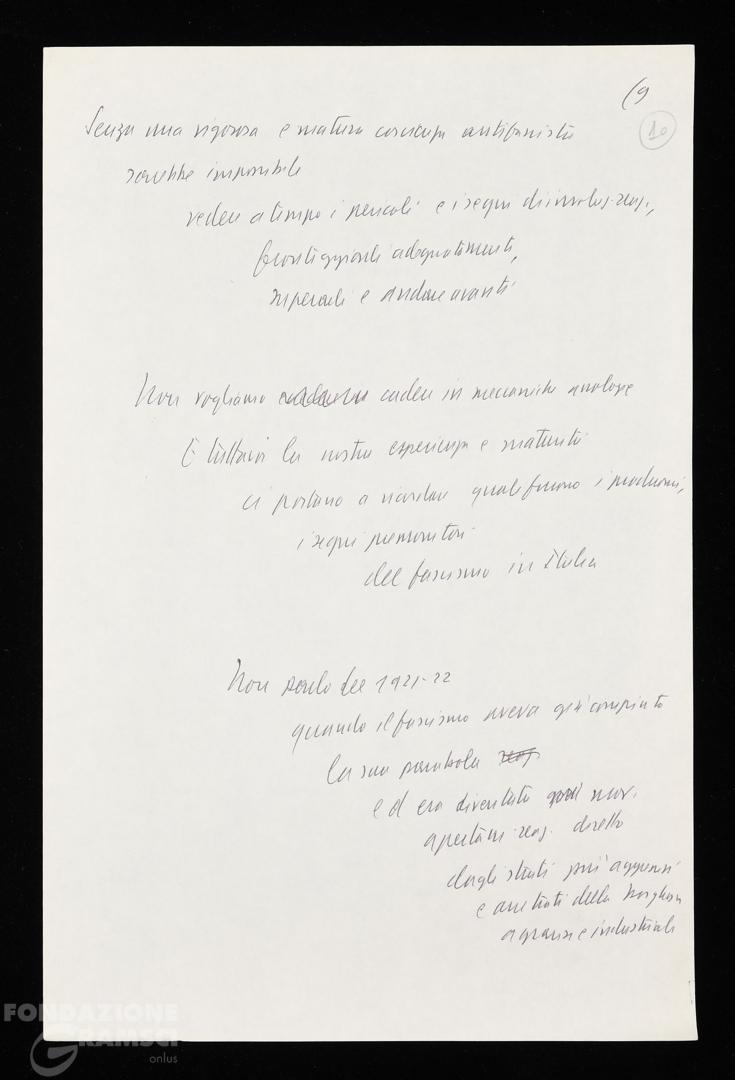 (9
10
Senza una rigorosa e matura coscienza antifascista
sarebbe impossibile
vedere a tempo i pericoli e i segni di involuz. reaz.,
fronteggiarli adeguatamente,
superarli e andare avanti
Non vogliamo cadere in meccaniche analogie
E tuttavia la nostra esperienza e maturità
ci portano a ricordare quali furono i prodromi,
i segni premonitori
del fascismo in Italia
Non parlo del 1921-22
quando il fascismo aveva già compiuto
la sua parabola reaz.
ed era diventato mov.
apertam. reaz. diretto
dagli strati più aggressivi
e arretrati della borghesia
agraria e industriale
FONDAZIONE
GRAMSCI
onlus